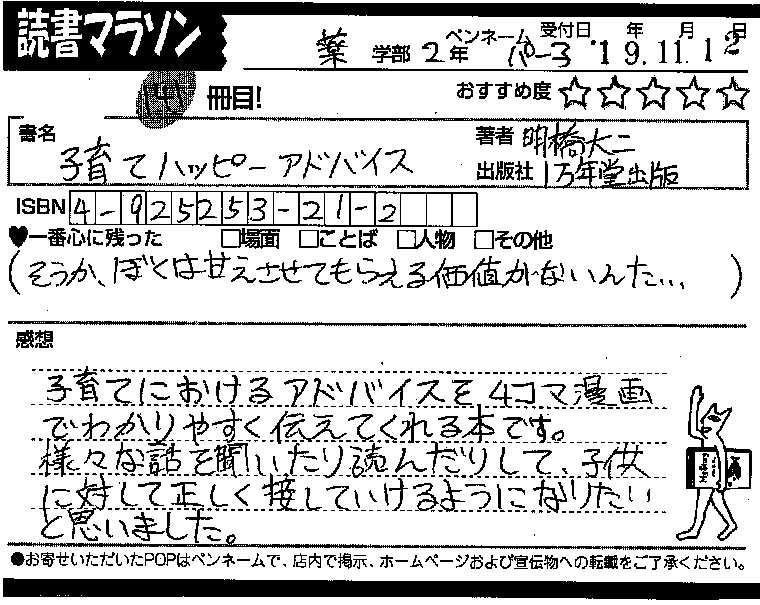 読書マラソン
薬 学部 2年 ペンネーム パー子 受付日 '19年11月12日
冊目!
おすすめ度 ☆☆☆☆☆
書名 子育てハッピーアドバイス
著者 明橋大二
出版社 1万年堂出版
ISBN 4-925253-21-2
♥一番心に残った □場面 □ことば □人物 □その他
(そうか、ぼくは甘えさせてもらえる価値がないんだ...)
感想
子育てにおけるアドバイスを4コマ漫画
でわかりやすく伝えてくれる本です。
様々な話を聞いたり読んだりして、子供
に対して正しく接していけるようになりたい
と思いました。
●お寄せいただいたPOPはペンネームで、店内で掲示、ホームページおよび宣伝物への転載をご了承ください。